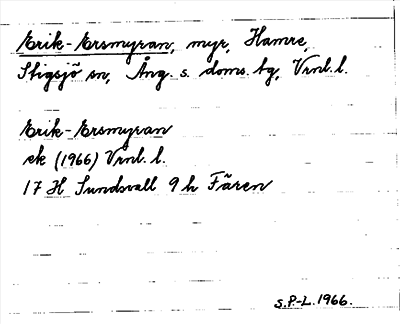 Erik-Ersmyran, myr, Hamre,
Stigsjö sn, Ång. s. doms. tg, Vrnl. l.
Erik-Ersmyran
ek (1966) Vrnl. l.
17 H Sundsvall 9 h Fären
S.P-L. 1966.